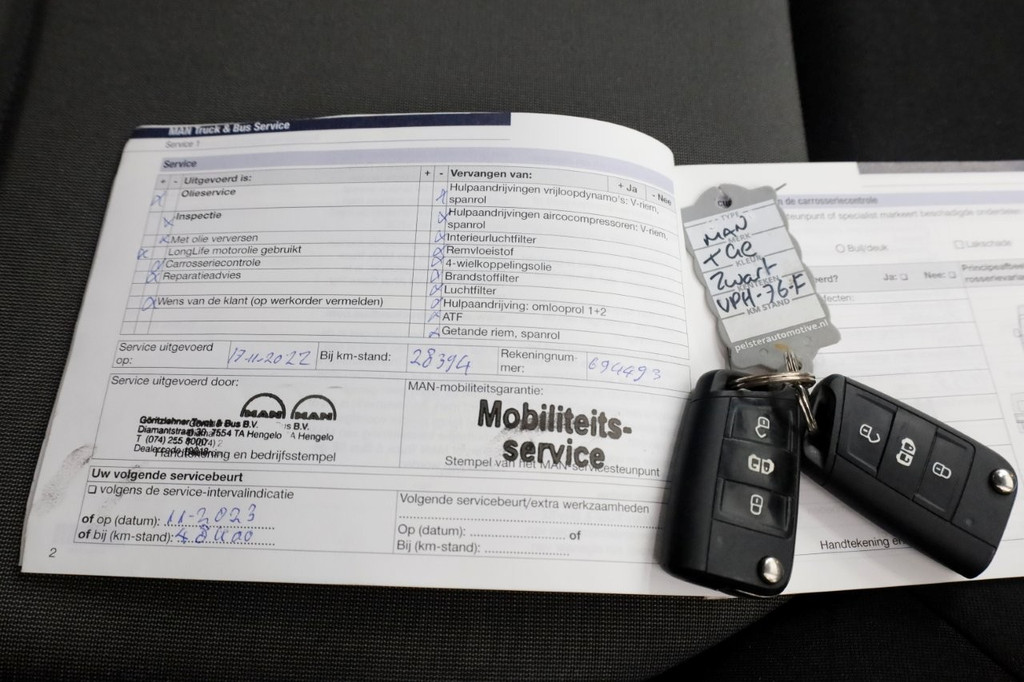 MAN Truck & Bus Service
Service 1
Service
+ - Uitgevoerd is:
Olieservice
Inspectie
Met olie verversen
LongLife motorolie gebruikt
Carrosseriecontrole
Reparatieadvies
Wens van de klant (op werkorder vermelden)
+ - Vervangen van:
+ Ja - Nee
Hulpaandrijvingen vrijloopdynamo's: V-riem,
spanrol
Hulpaandrijvingen aircocompressoren: V-riem,
spanrol
Interieurluchtfilter
Remvloeistof
4-wielkoppelingsolie
Brandstoffilter
Luchtfilter
Hulpaandrijving: omlooprol 1+2
ATF
Getande riem, spanrol
Service uitgevoerd
op: 17-11-2022
Bij km-stand: 28394
Rekeningnum-
mer: 694493
Service uitgevoerd door:
MAN MAN
Truck & Bus B.V. s B.V.
7554 TA Hengelo A Hengelo
T (074) 255 8000
Handtekening en bedrijfsstempel
MAN-mobiliteitsgarantie:
Mobiliteits-
service
Stempel van het MAN-servicesteunpunt
Uw volgende servicebeurt
volgens de service-intervalindicatie
of op (datum): 11-2023
of bij (km-stand): 48400
Volgende servicebeurt/extra werkzaamheden
Op (datum): of
Bij (km-stand):
2
TYPE
MAN
MERK
TGE
KLEUR
Zwart
KENTEKEN
VPH-76-F
KM STAND
pelsterautomotive.nl
de carrosseriecontrole
teunpunt of specialist markeert beschadigde onderdelen
Buil/deuk
Lakschade
Ja: Nee:
Principeafbee
rosserievaria
Handtekening en